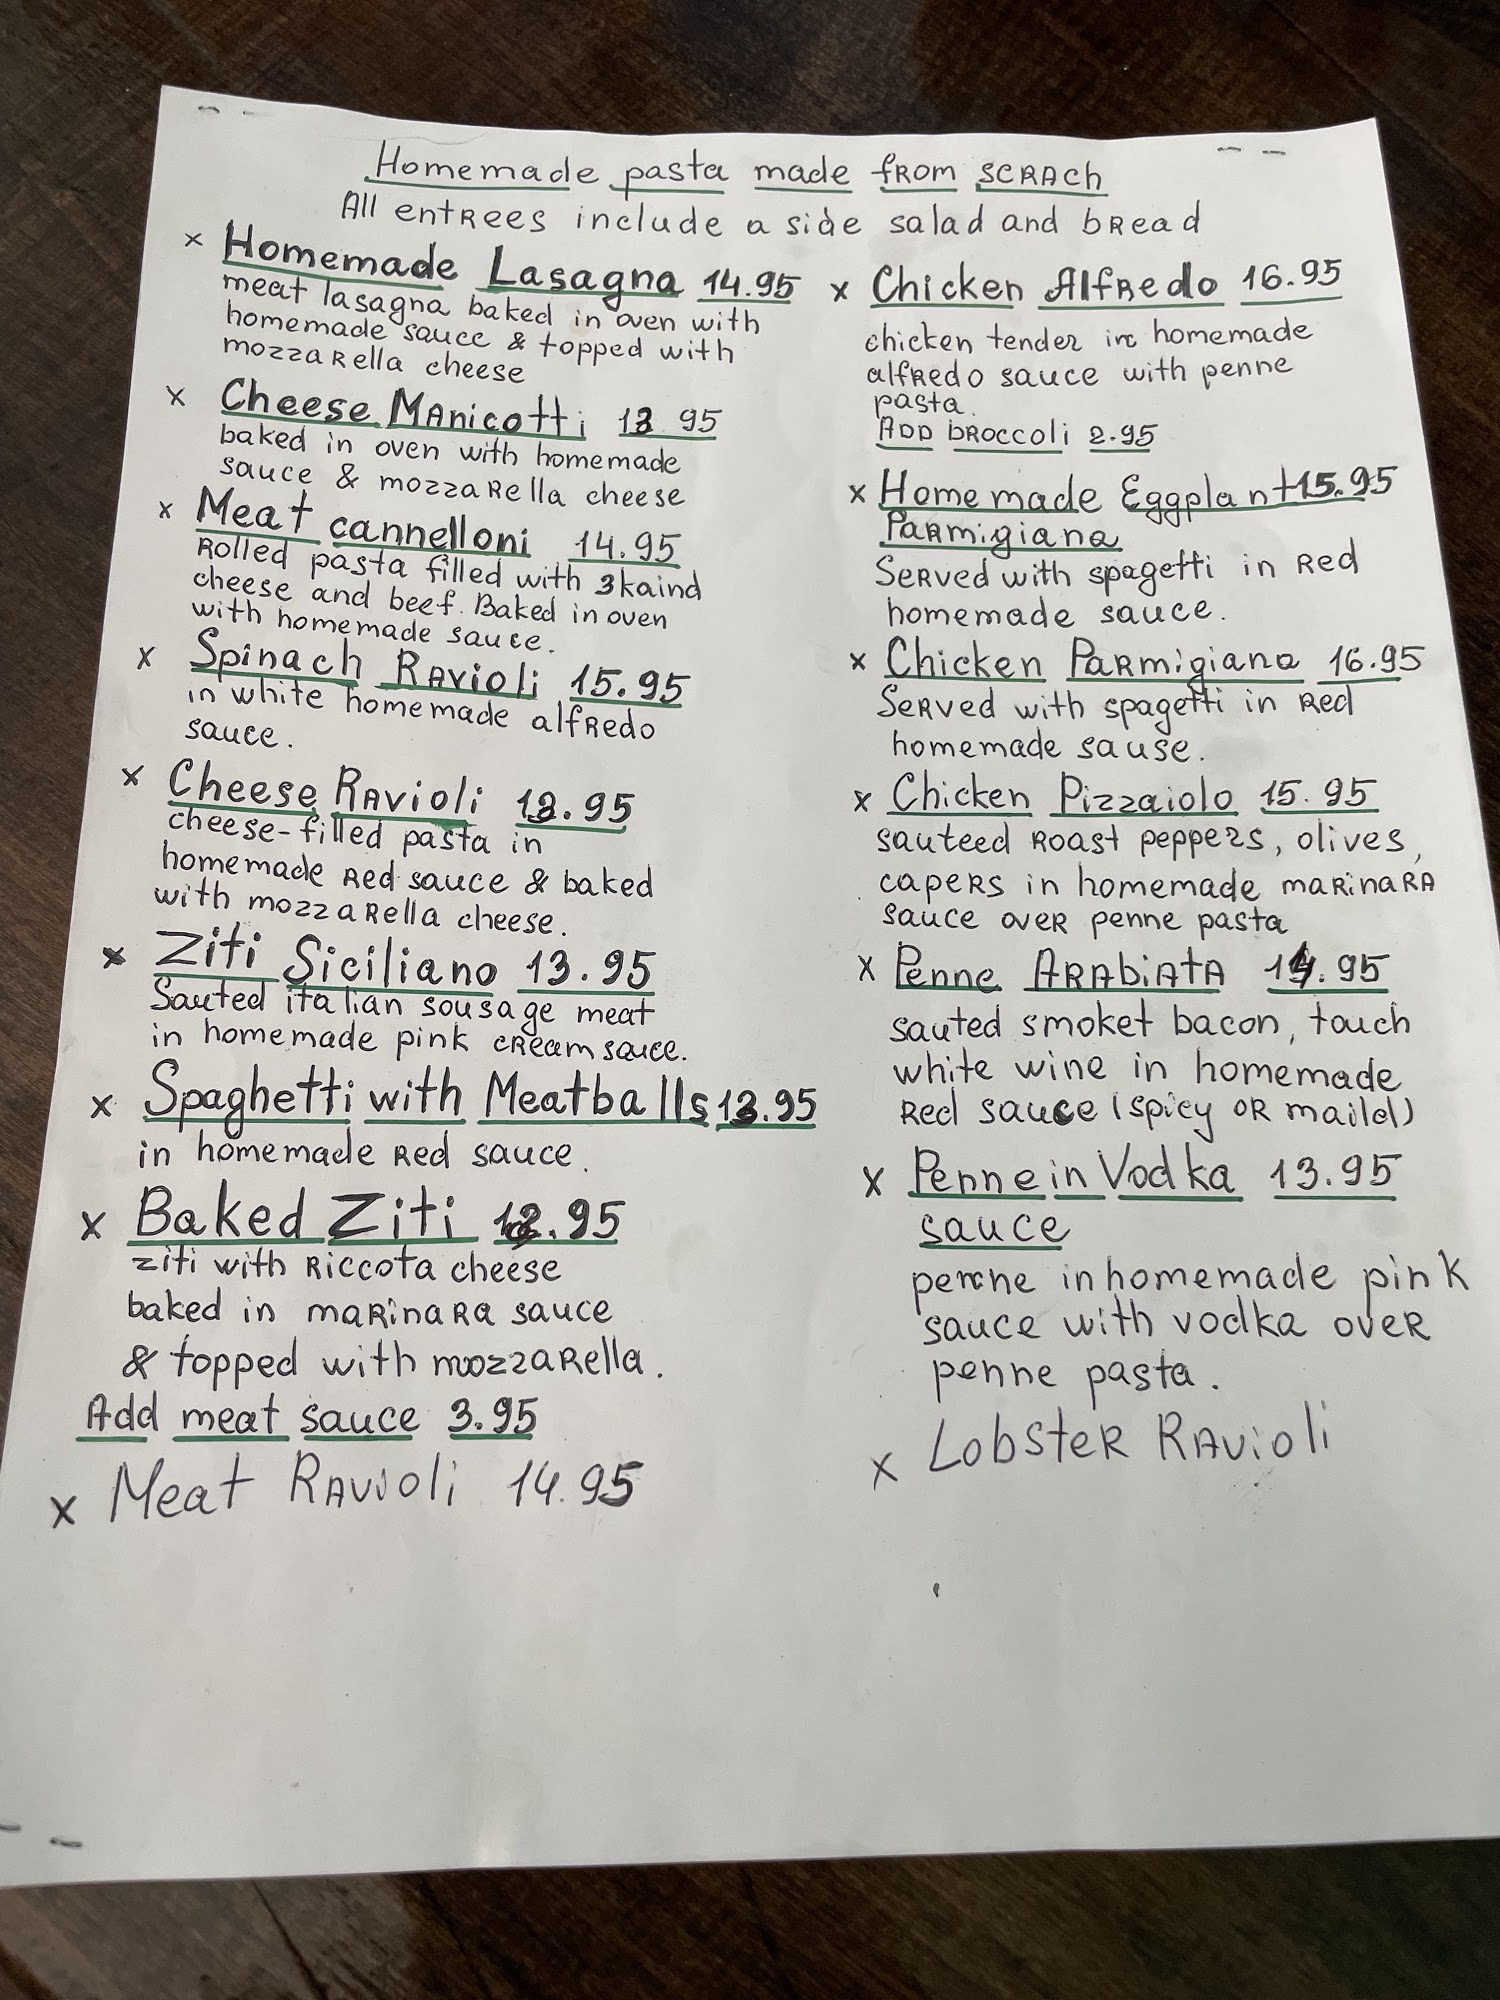 Homemade pasta made from scrach
All entrees include a side salad and bread
x Homemade Lasagna 14.95
meat lasagna baked in oven with
homemade sauce & topped with
mozzarella cheese
x Cheese Manicotti 13 95
baked in oven with homemade
sauce & mozzarella cheese
x Meat cannelloni 14.95
Rolled pasta filled with 3 kaind
cheese and beef. Baked in oven
with homemade sauce.
x Spinach Ravioli 15.95
in white homemade alfredo
sauce.
x Cheese Ravioli 13.95
cheese-filled pasta in
homemade Red sauce & baked
with mozzarella cheese.
x Ziti Siciliano 13.95
Sauted italian sousage meat
in homemade pink cream sauce.
x Spaghetti with Meatballs 13.95
in homemade Red sauce.
x Baked Ziti .95
ziti with Riccota cheese
baked in marinara sauce
& topped with mozzarella.
Add meat sauce 3.95
x Meat Ravioli 14.95
x Chicken Alfredo 16.95
chicken tender in homemade
alfredo sauce with penne
pasta.
Add broccoli 2.95
x Homemade Eggplant 15.95
Parmigiana
Served with spagetti in Red
homemade sauce.
x Chicken Parmigiana 16.95
Served with spagetti in Red
homemade sause.
x Chicken Pizzaiolo 15.95
sauteed Roast peppers, olives,
capers in homemade marinara
sauce over penne pasta
x Penne Arabiata 14.95
sauted smoket bacon, touch
white wine in homemade
Red sauce (spicy or maild)
x Penne in Vodka 13.95
sauce
penne in homemade pink
sauce with vodka over
penne pasta.
x Lobster Ravioli